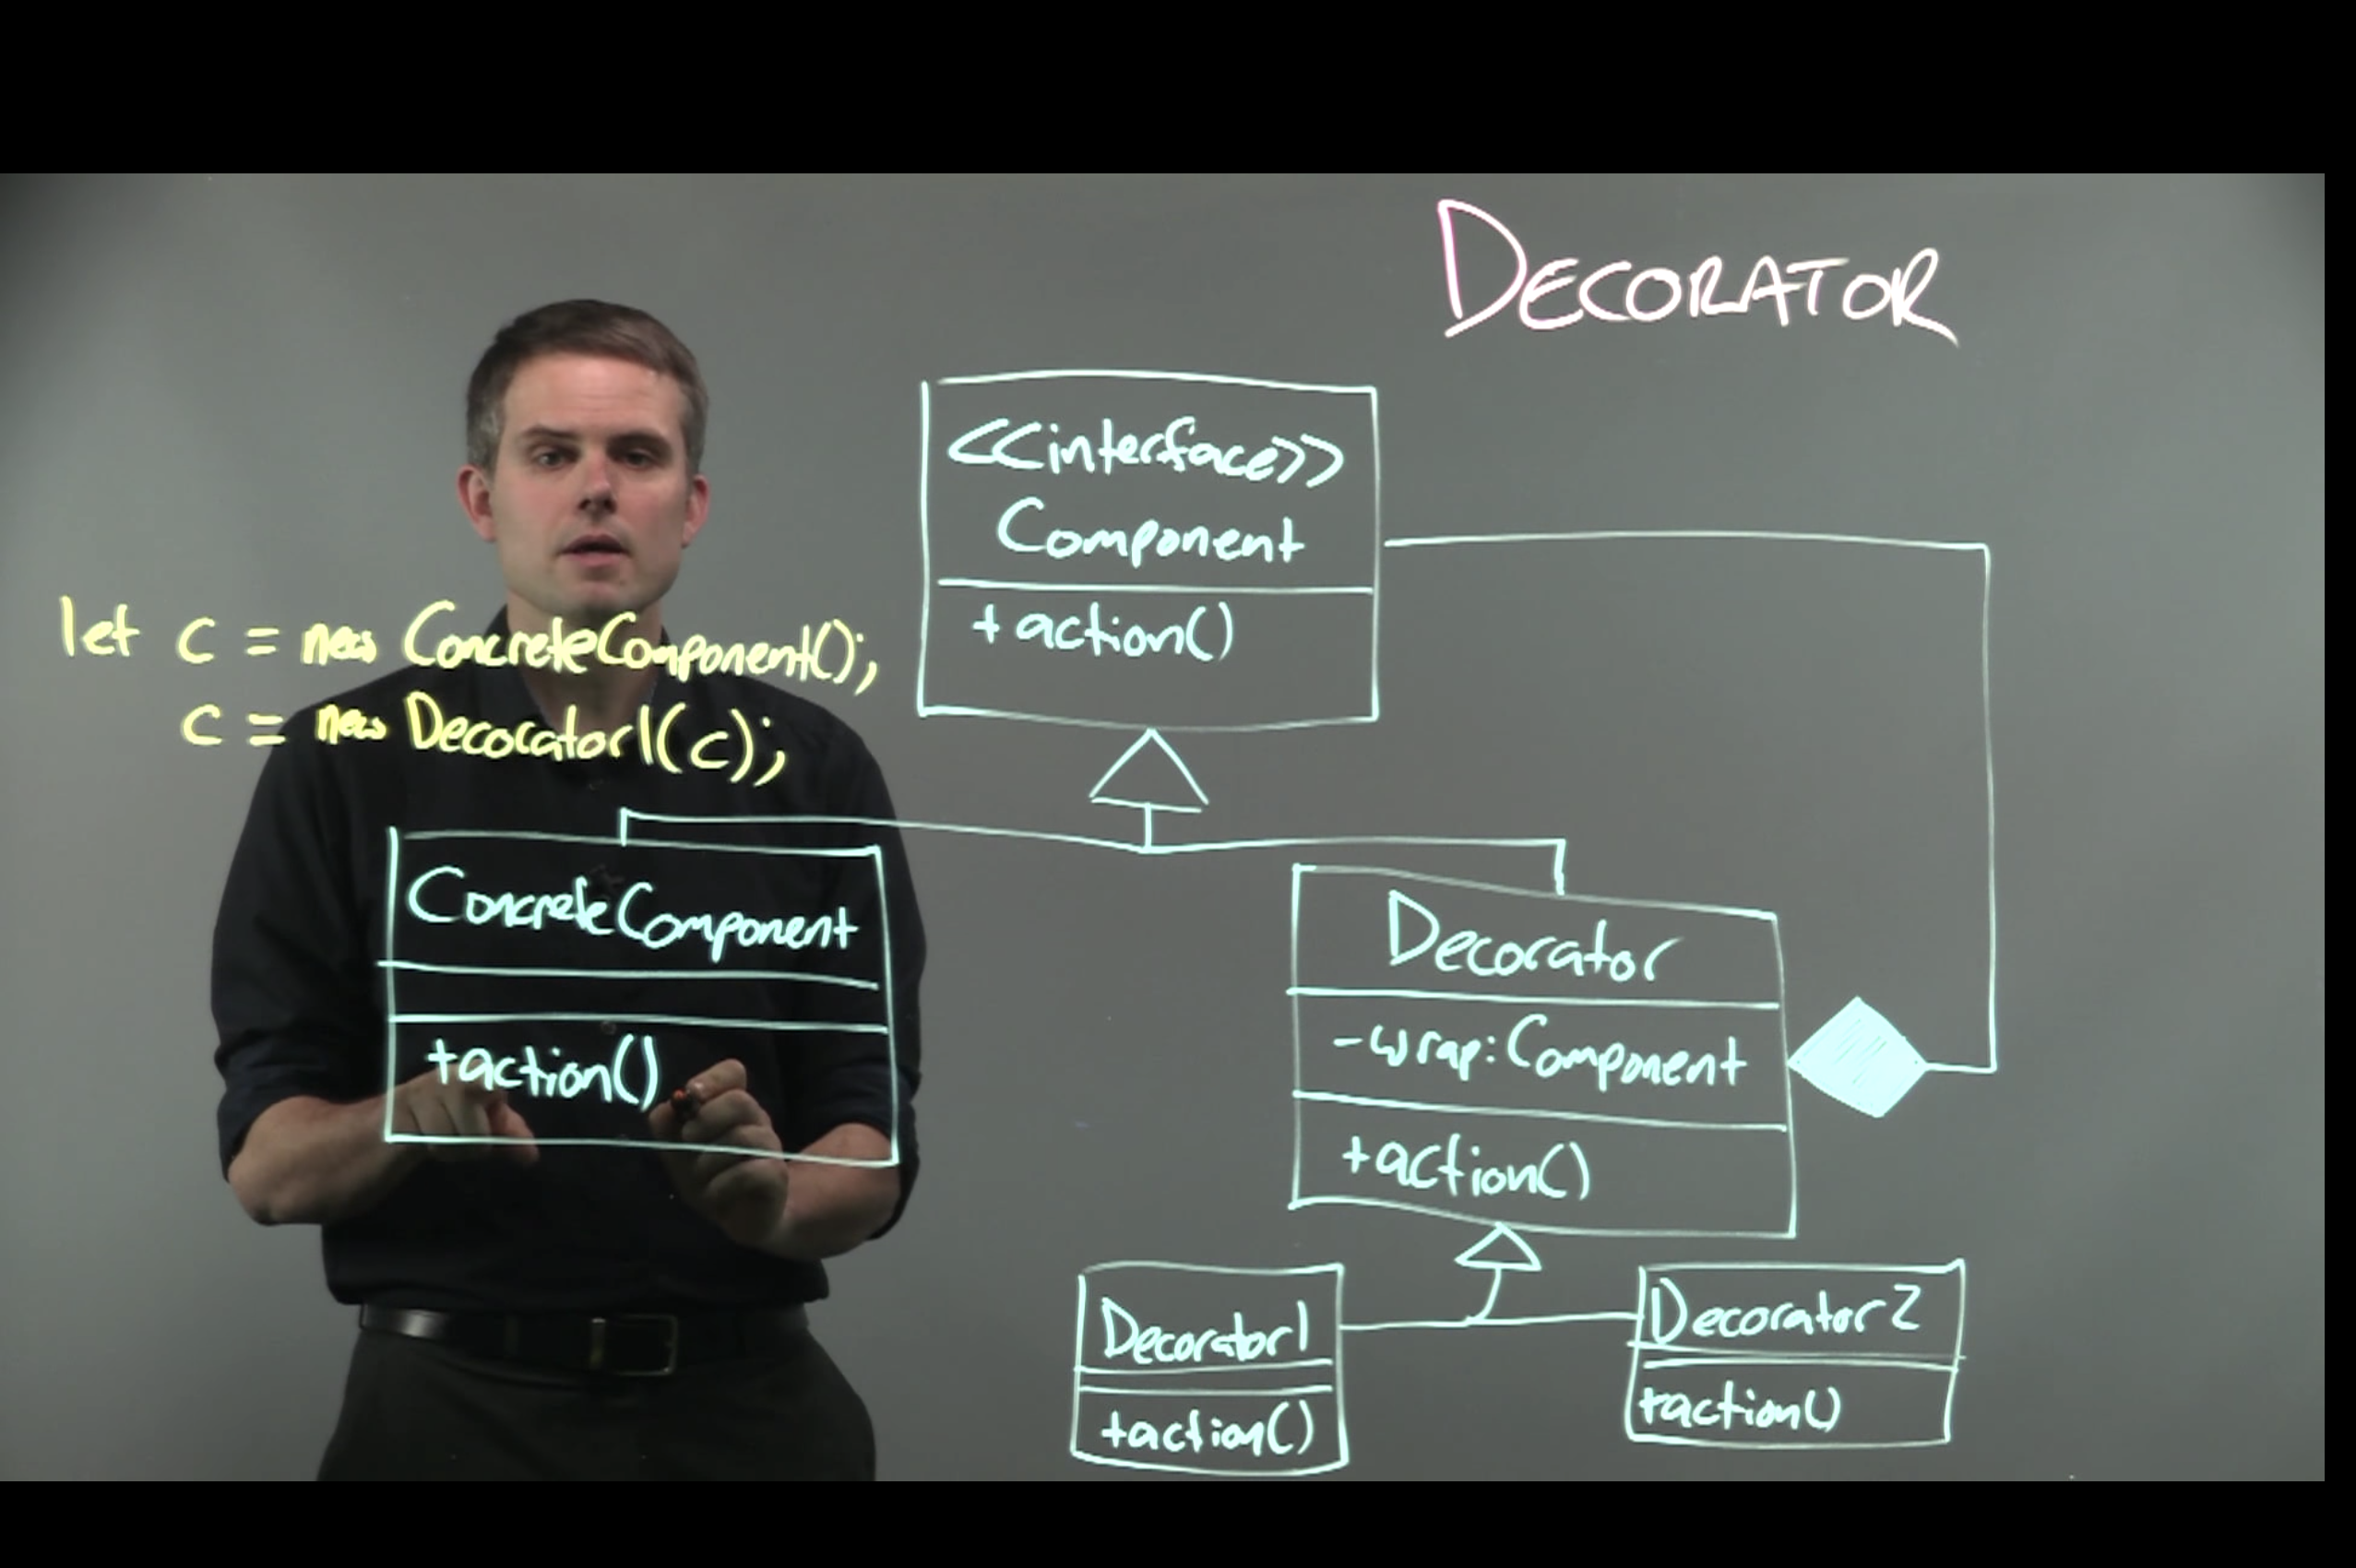 DECORATOR
<<interface>>
Component
+action()
let c = new ConcreteComponent();
c = new Decorator1(c);
ConcreteComponent
+action()
Decorator
-wrap:Component
+action()
Decorator1
+action()
Decorator2
+action()